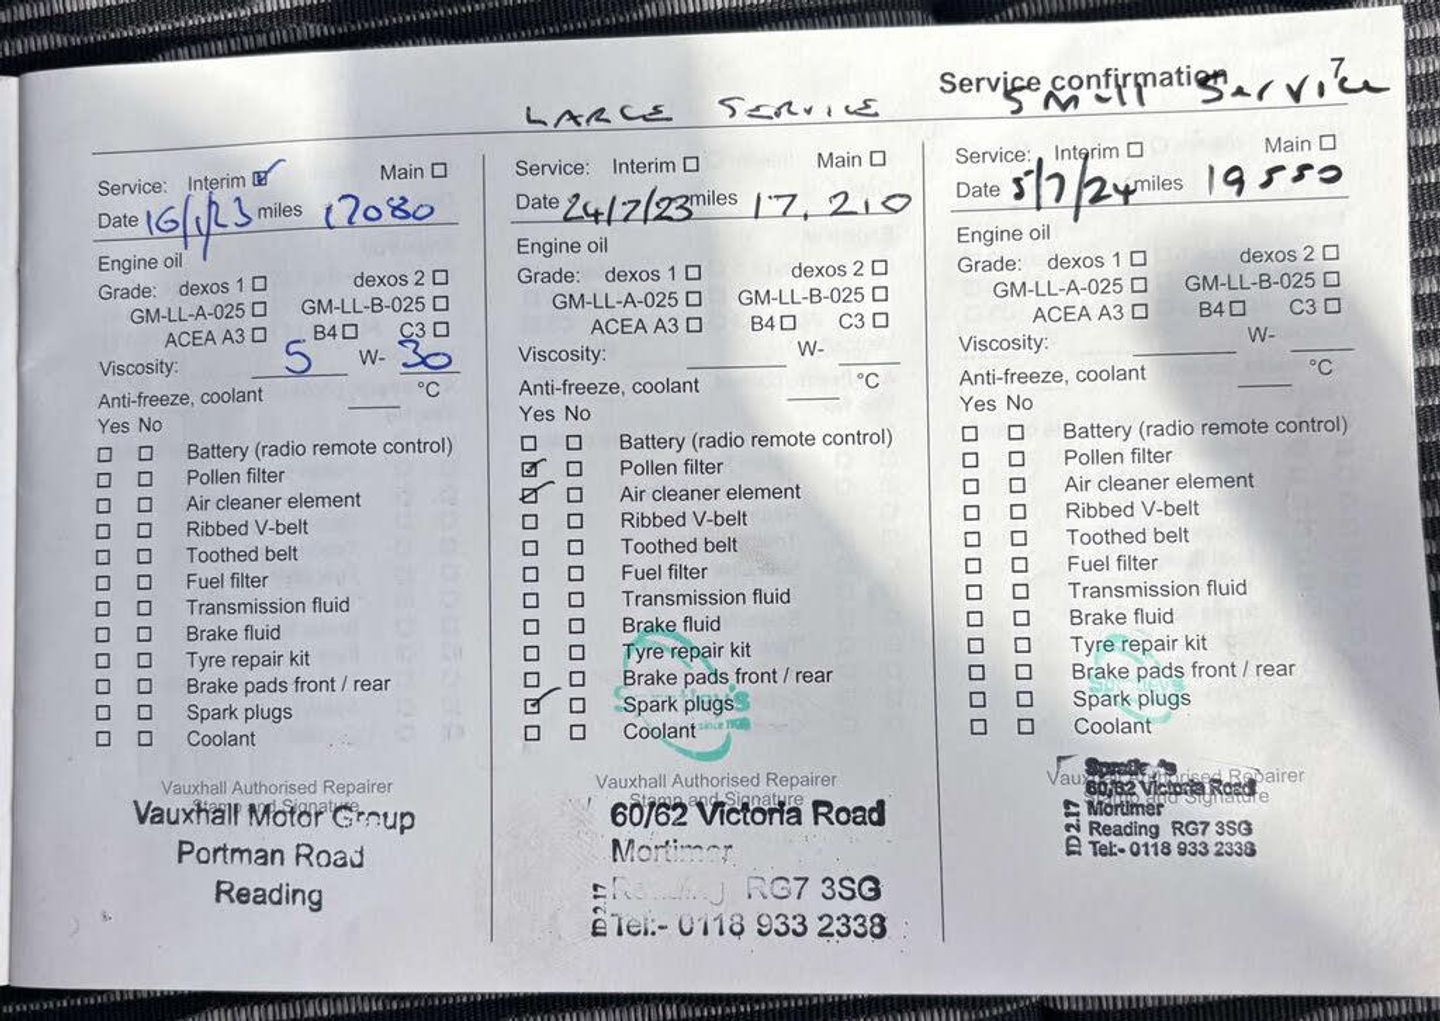 Service confirmation 7
LARGE SERVICE
Small Service
Service: Interim Main
Date 16/1/23 miles 17080
Engine oil
Grade: dexos 1 dexos 2
GM-LL-A-025 GM-LL-B-025
ACEA A3 B4 C3
Viscosity: 5 W- 30
Anti-freeze, coolant °C
Yes No
Battery (radio remote control)
Pollen filter
Air cleaner element
Ribbed V-belt
Toothed belt
Fuel filter
Transmission fluid
Brake fluid
Tyre repair kit
Brake pads front / rear
Spark plugs
Coolant
Vauxhall Authorised Repairer
Stamp and Signature
Vauxhall Motor Group
Portman Road
Reading
Service: Interim Main
Date 24/7/23 miles 17,210
Engine oil
Grade: dexos 1 dexos 2
GM-LL-A-025 GM-LL-B-025
ACEA A3 B4 C3
Viscosity: W-
Anti-freeze, coolant °C
Yes No
Battery (radio remote control)
Pollen filter
Air cleaner element
Ribbed V-belt
Toothed belt
Fuel filter
Transmission fluid
Brake fluid
Tyre repair kit
Brake pads front / rear
Spark plugs
since
Coolant
Vauxhall Authorised Repairer
Stamp and Signature
60/62 Victoria Road
Mortimer
Reading RG7 3SG
Tel:- 0118 933 2338
ID2.17
Service: Interim Main
Date 5/7/24 miles 19550
Engine oil
Grade: dexos 1 dexos 2
GM-LL-A-025 GM-LL-B-025
ACEA A3 B4 C3
Viscosity: W-
Anti-freeze, coolant °C
Yes No
Battery (radio remote control)
Pollen filter
Air cleaner element
Ribbed V-belt
Toothed belt
Fuel filter
Transmission fluid
Brake fluid
Tyre repair kit
Brake pads front / rear
Spark plugs
Coolant
Vauxhall Authorised Repairer
Stamp and Signature
Spratley's
60/62 Victoria Road
Mortimer
Reading RG7 3SG
Tel:- 0118 933 2338
ID2.17